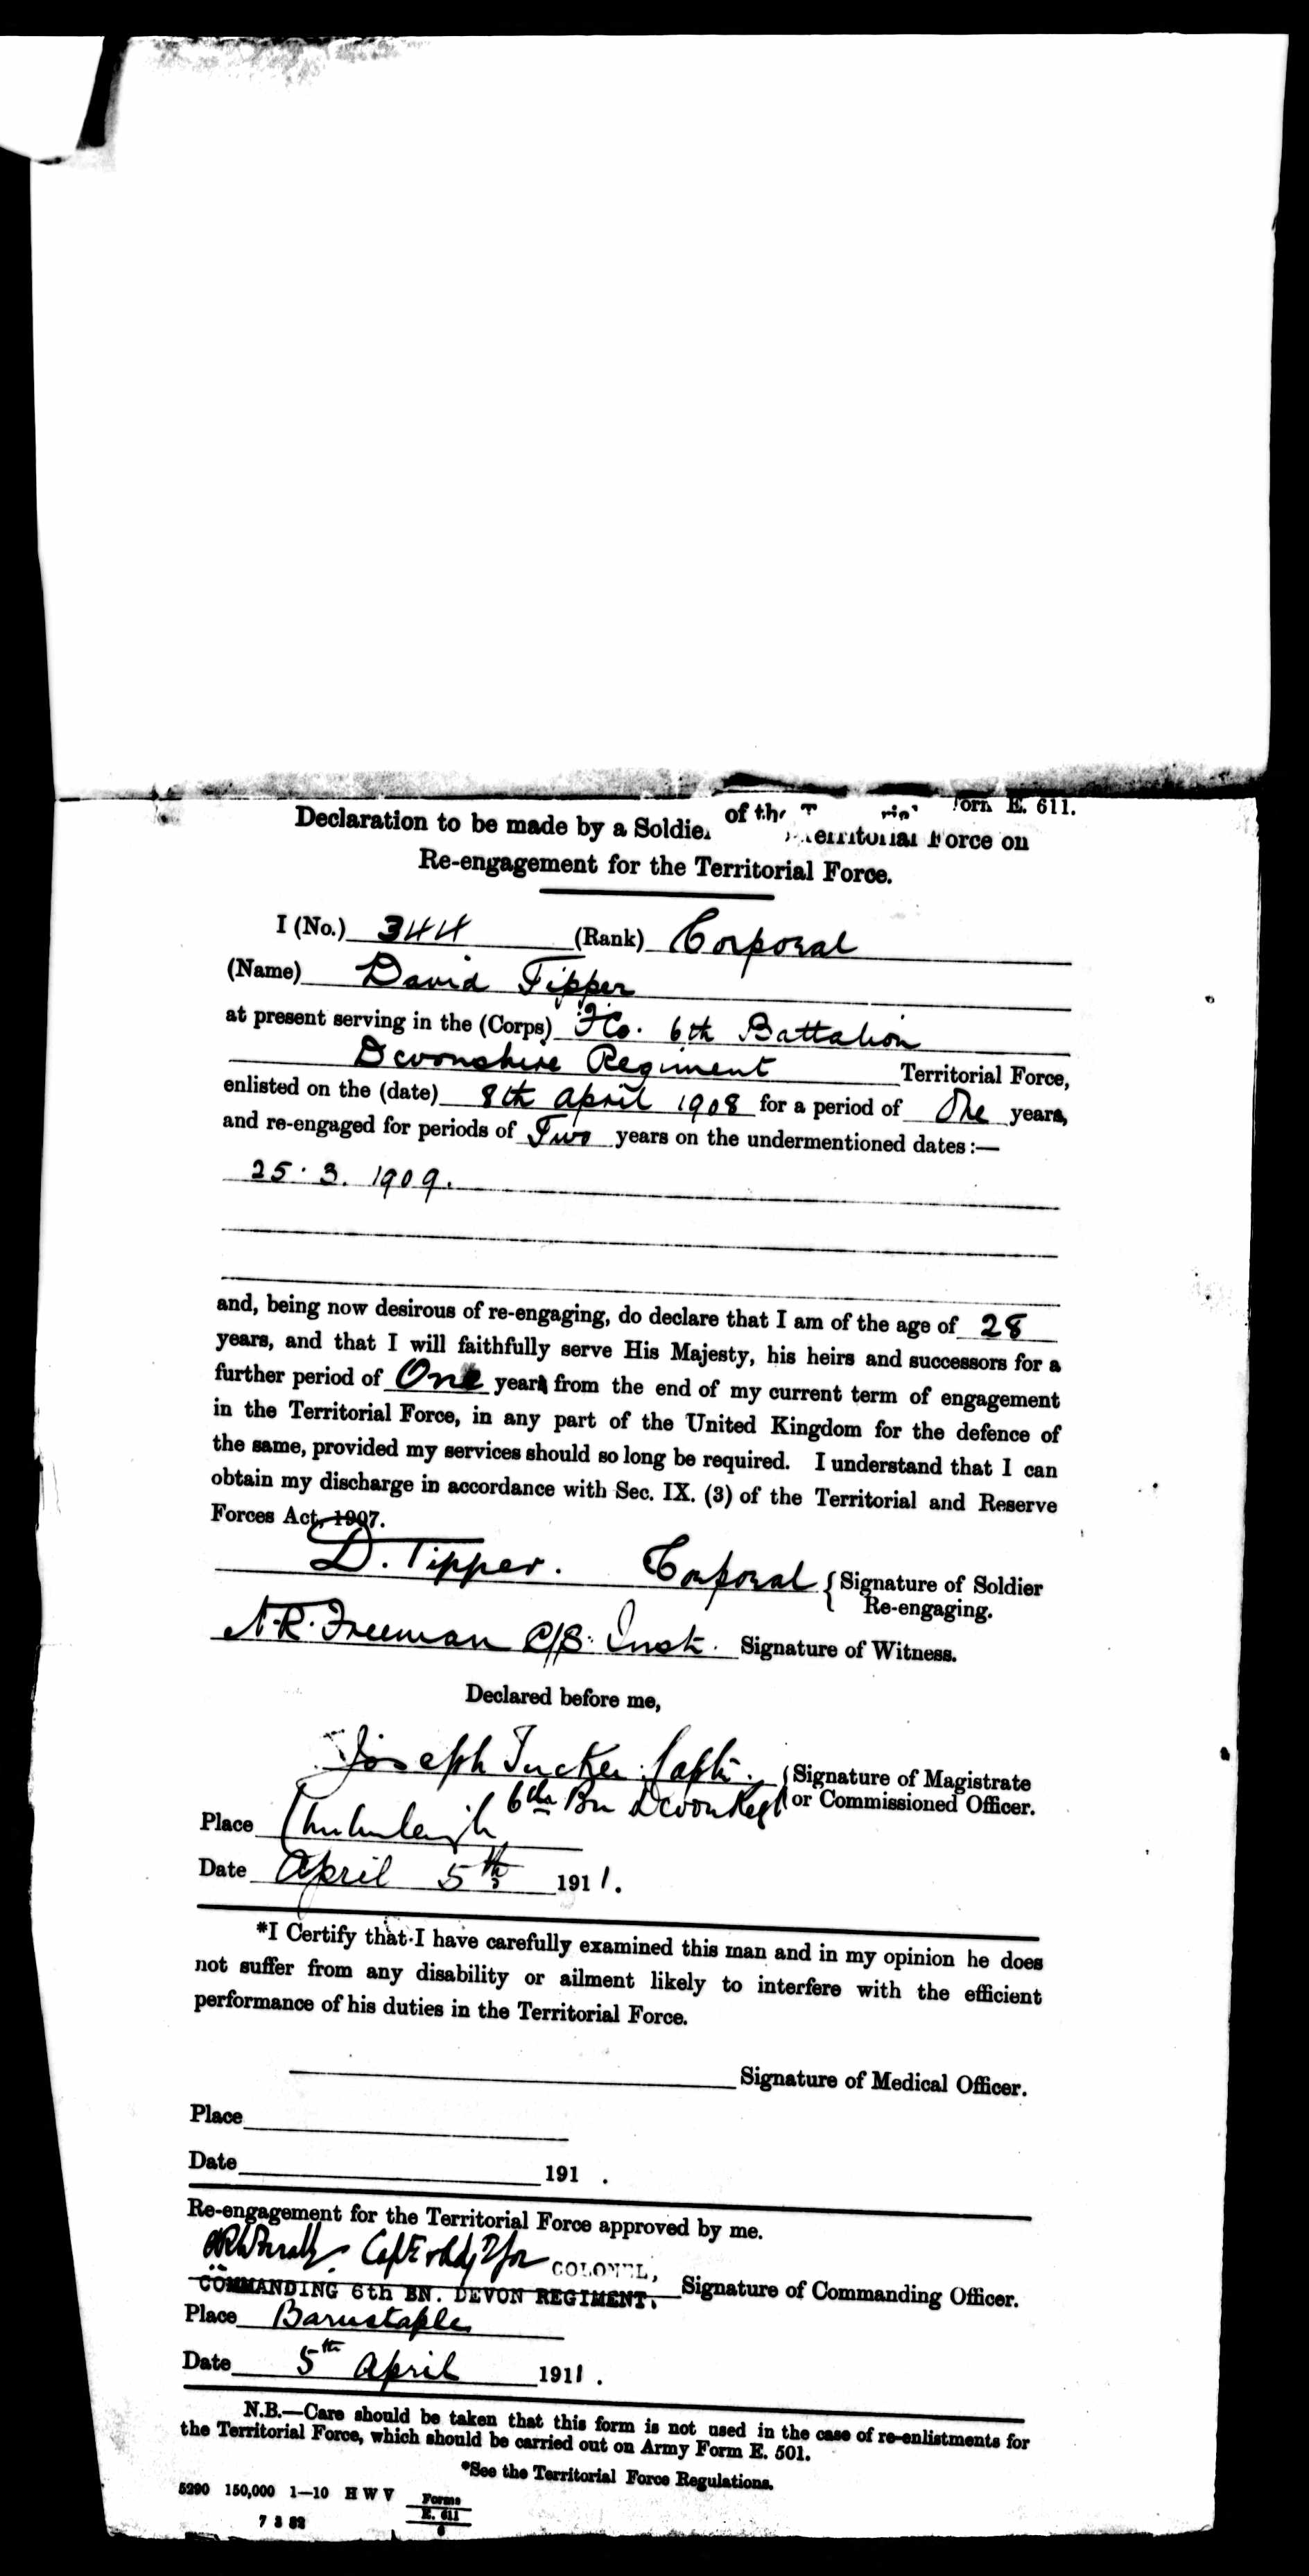 Form E. 611.
Declaration to be made by a Soldier of the Territorial Force on
Re-engagement for the Territorial Force.
I (No.) 344 (Rank) Corporal
(Name) David Tipper
at present serving in the (Corps) F Co. 6th Battalion
Devonshire Regiment Territorial Force,
enlisted on the (date) 8th April 1908 for a period of One years,
and re-engaged for periods of Two years on the undermentioned dates:—
25. 3. 1909.
and, being now desirous of re-engaging, do declare that I am of the age of 28
years, and that I will faithfully serve His Majesty, his heirs and successors for a
further period of One years from the end of my current term of engagement
in the Territorial Force, in any part of the United Kingdom for the defence of
the same, provided my services should so long be required. I understand that I can
obtain my discharge in accordance with Sec. IX. (3) of the Territorial and Reserve
Forces Act, 1907.
D. Tipper. Corporal { Signature of Soldier
Re-engaging.
Freeman C/S. Inst. Signature of Witness.
Declared before me,
Joseph Tucker Capt. { Signature of Magistrate
6th Bn Devon Regt or Commissioned Officer.
Place Chulmleigh
Date April 5th 1911.
*I Certify that I have carefully examined this man and in my opinion he does
not suffer from any disability or ailment likely to interfere with the efficient
performance of his duties in the Territorial Force.
Signature of Medical Officer.
Place
Date 191 .
Re-engagement for the Territorial Force approved by me.
Capt & Adjt for COLONEL,
COMMANDING 6th BN. DEVON REGIMENT. Signature of Commanding Officer.
Place Barnstaple
Date 5th April 1911.
N.B.—Care should be taken that this form is not used in the case of re-enlistments for
the Territorial Force, which should be carried out on Army Form E. 501.
*See the Territorial Force Regulations.
5290 150,000 1—10 H W V Forms
E. 611
6